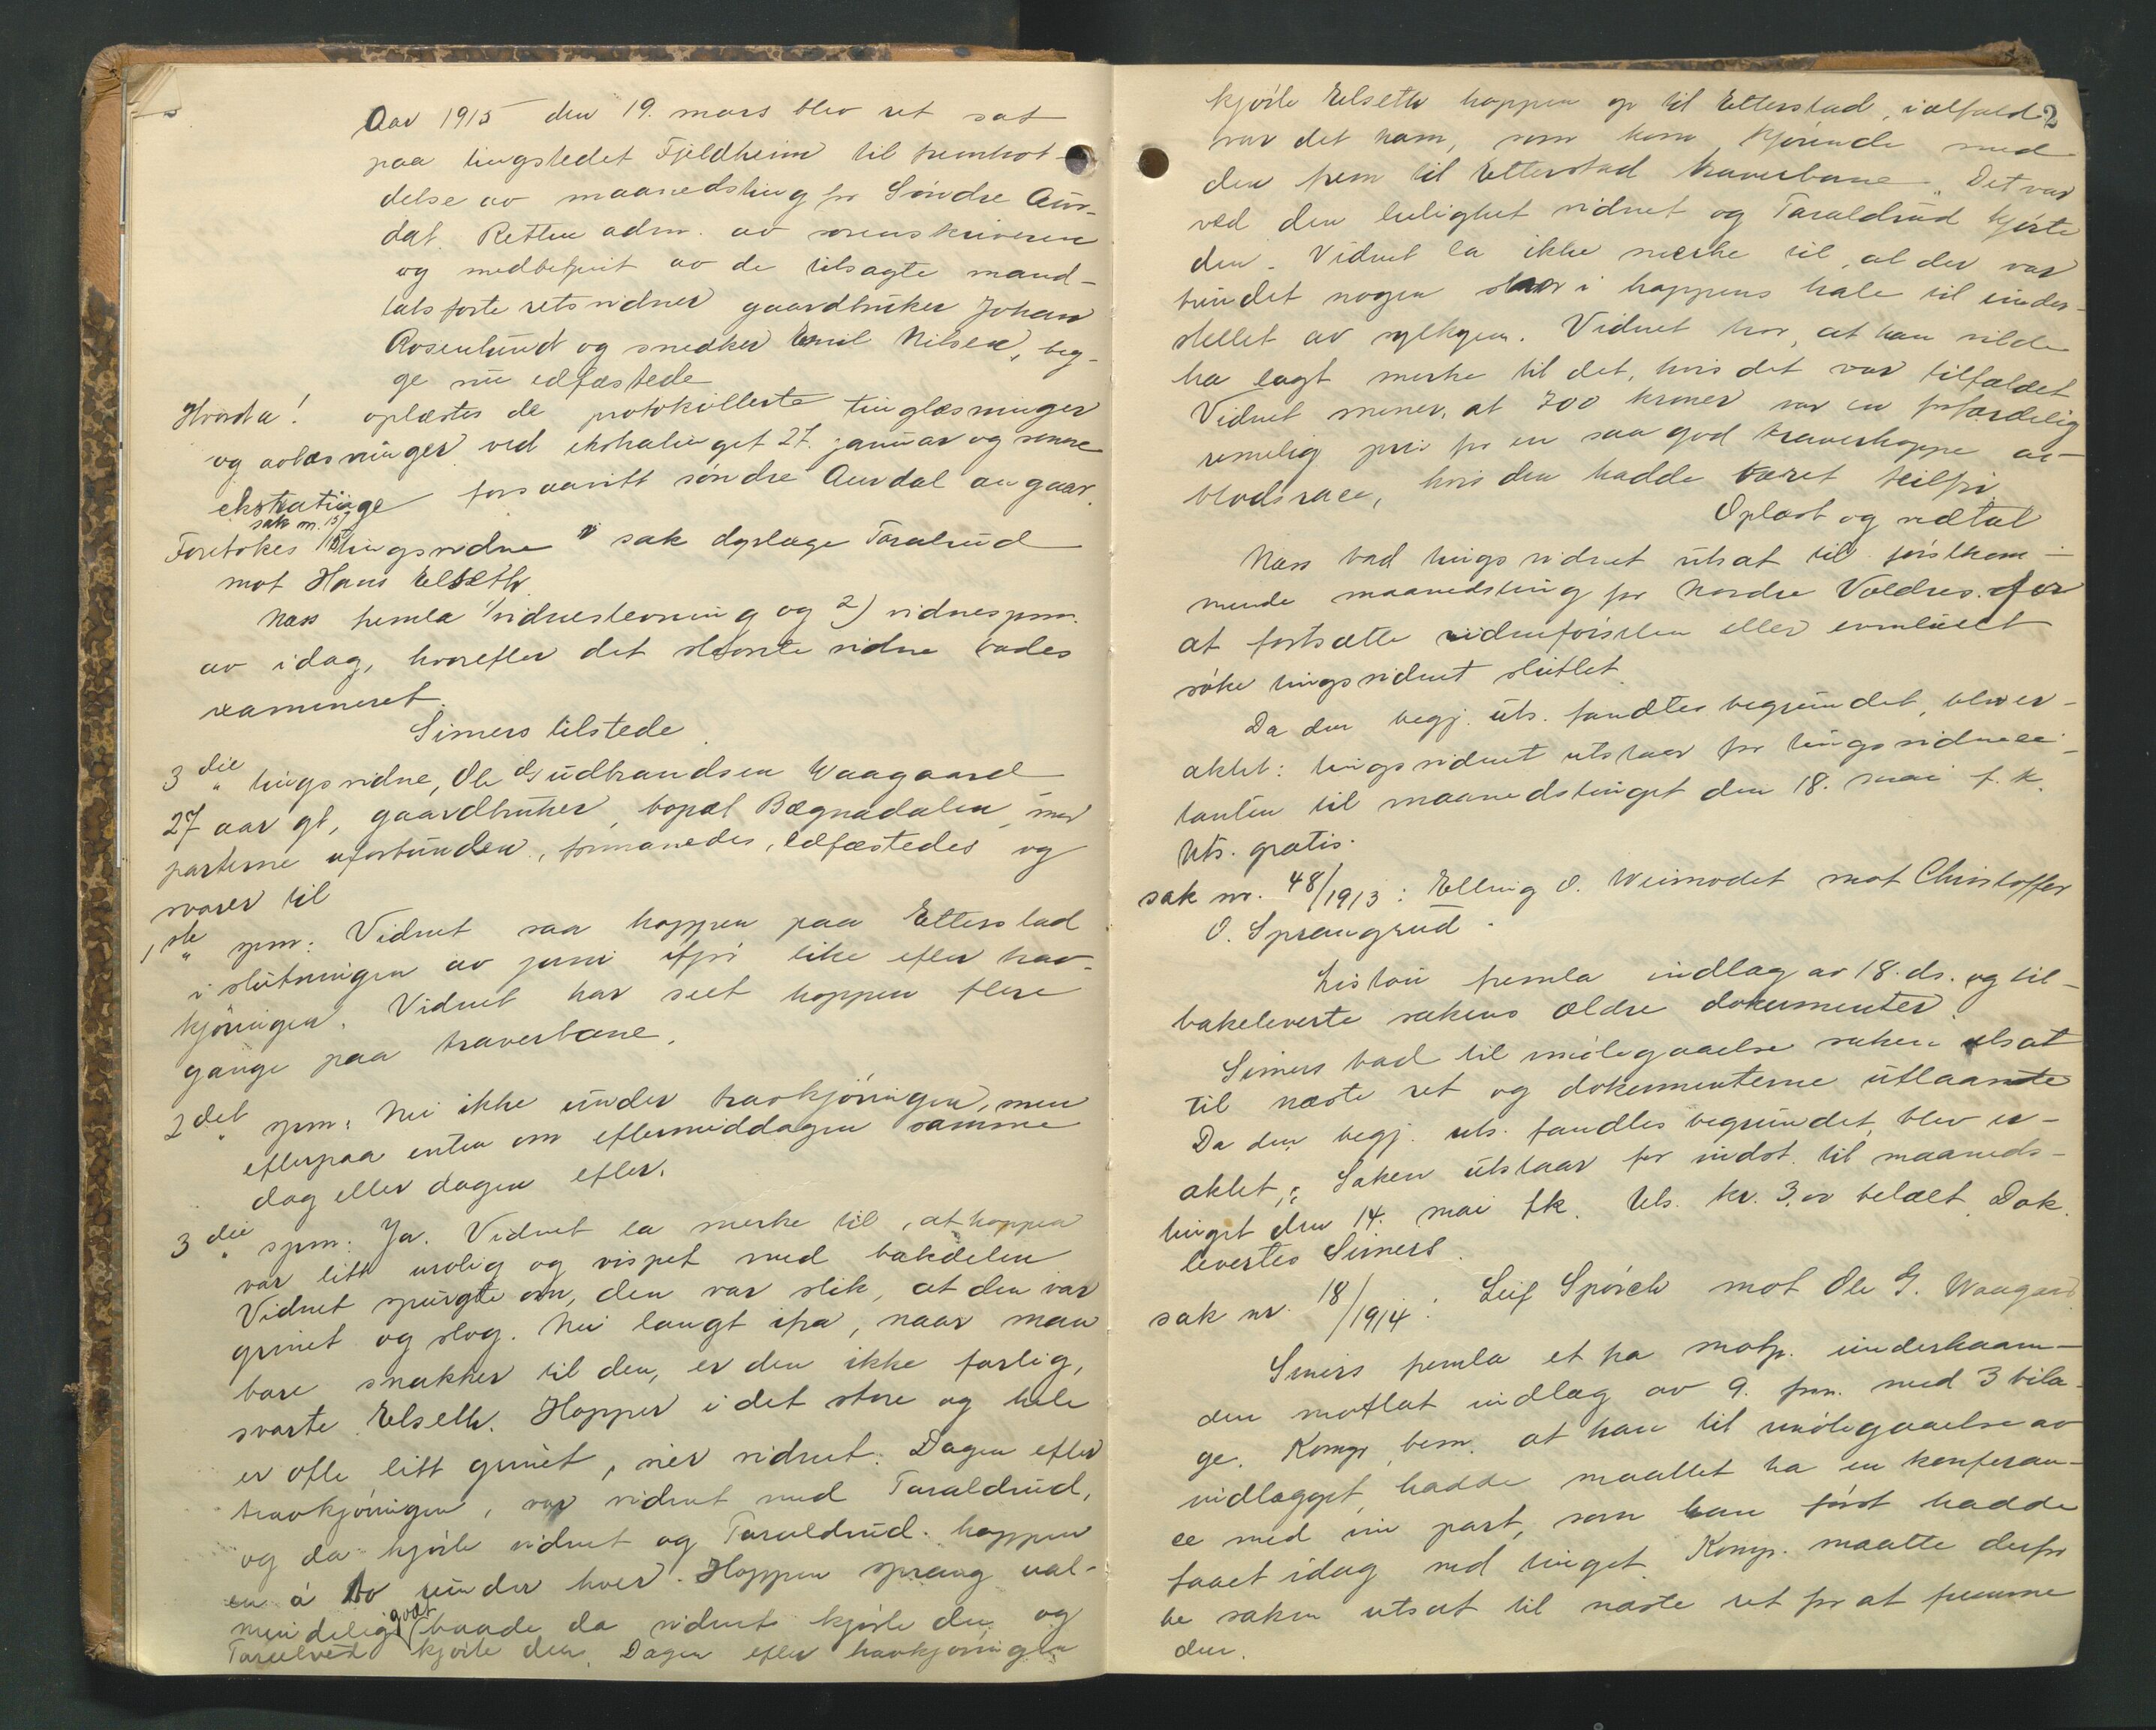 Aar 1915 den 19. mars blev ret sat
paa tingstedet Fjeldheim til fremhol-
delse av maanedsting for Søndre Aur-
dal. Retten adm. av sorenskriveren
og medbetjent av de tilsagte mand-
talsførte retsvidner gaardbruker Johan
Rosenlund og snedker Emil Nilsen, beg-
ge nu edfæstede
Hvorda! oplæstes de protokollerte tinglæsninger
og avlæsninger ved ekstratinget 27. januar og senere
ekstratinge forsaavitt søndre Aurdal angaar.
sak nr. 15/
Foretokes tingsvidne i sak dyrlæge Taralrud
mot Hans Elseth.
Næss fremla 1/ vidnestevning og 2) vidnespsm.
av idag, hvorefter det stevnte vidne bades
examineret.
Simers tilstede.
3die tingsvidne, Ole Gudbrandsen Waagaard
27 aar gl, gaardbruker, bopæl Bægnadalen, med
parterne uforbunden, formanedes, edfæstedes og
svarer til
1ste spm: Vidnet saa hoppen paa Etterstad
i slutningen av juni ifjor like efter trav-
kjøringen. Vidnet har seet hoppen flere
gange paa traverbane.
2det spm: Nei ikke under travkjøringen, men
efterpaa enten om eftermiddagen samme
dag eller dagen efter.
3die spm: Ja. Vidnet la merke til, at hoppen
var litt urolig og vispet med bakdelen
Vidnet spurgte om, den var slik, at den var
grinet og slog. Nei langt ifra, naar man
bare snakker til den, er den ikke farlig,
svarte Elseth. Hopper i det store og hele
er ofte litt grinet, sier vidnet. Dagen efter
travkjøringen, var vidnet med Taraldrud,
og da kjørte vidnet og Taraldrud hoppen
en à to runder hver. Hoppen sprang ual-
mindelig godt baade da vidnet kjørte den og
Taralrud kjørte den. Dagen efter travkjøringen
2
kjørte Elseth hoppen op til Etterstad, ialfald
var det ham, som kom kjørende med
den frem til Etterstad traverbane. Det var
ved den leilighet vidnet og Taraldrud kjørte
den. Vidnet la ikke merke til, at der var
bundet nogen snor i hoppens hale til under-
stellet av sylkyen. Vidnet tror, at han vilde
ha lagt merke til det, hvis det var tilfældet
Vidnet mener, at 700 kroner var en forfærdelig
rimelig pris for en saa god traverhoppe av
blodsrace, hvis den hadde været feilfri.
Oplæst og vedtat
Næss bad tingsvidnet utsat til førstkom-
mende maanedsting for Nordre Valdres for
at fortsætte vidneførselen eller eventuelt
søke tingsvidnet sluttet.
Da den begj. uts. fandtes begrundet, blev er-
aktet: tingsvidnet utstaar for tingsvidneci-
tanten til maanedstinget den 18. mai f. k.
Uts. gratis.
sak nr. 48/1913: Elling O. Weimodet mot Christoffer
O. Sprangrud.
Liston fremla indlæg av 18. ds. og til-
bakeleverte sakens ældre dokumenter.
Simers bad til imøtegaaelse saken utsat
til næste ret og dokumenterne utlaante
Da den begj. uts. fandtes begrundet, blev er-
aktet: Saken utstaar for indst. til maaneds-
tinget den 14. mai f.k. Uts. kr. 3,00 betalt. Dok.
levertes Simers.
sak nr. 18/1914: Leif Spørck mot Ole G. Waagaard.
Simers fremla et fra motp. underhaan-
den mottat indlæg av 9. ds. med 3 bila-
ge. Komp. bem. at han til imøtegaaelse av
indlægget hadde maattet ha en konferan-
ce med sin part, som han først hadde
faaet idag ved tinget. Komp. maatte derfor
be saken utsat til næste ret for at fremme
den.